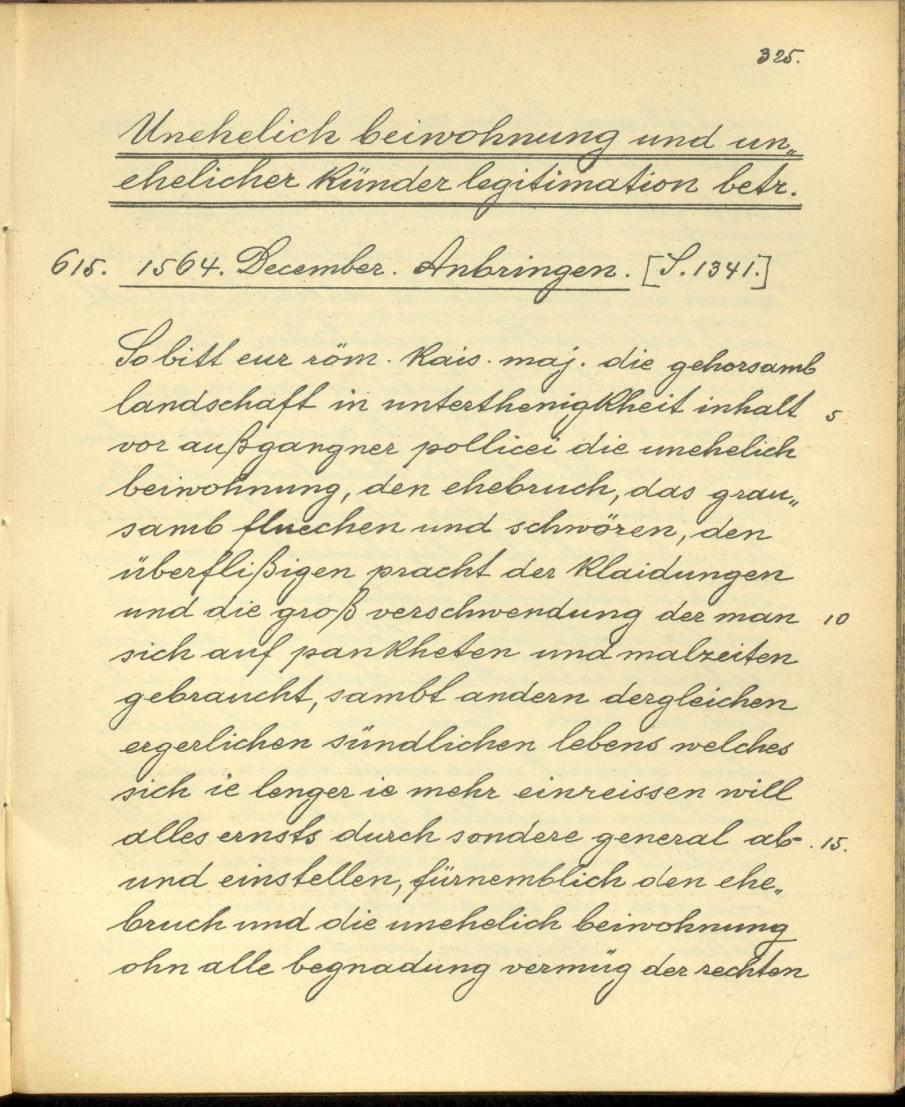 325.
Unehelich beiwohnung und un„
ehelicher Künder legitimation betr.
615. 1564. December. Anbringen. [S. 1341.]
So bitt eur röm. Kais. maj. die gehorsamb
landschaft in unterthenigkheit inhalt 5
vor außgangner pollicei die unehelich
beiwohnung, den ehebruch, das grau„
samb fluechen und schwören, den
überflißigen pracht der Klaidungen
und die groß verschwendung der man 10
sich auf pankheten und malzeiten
gebraucht, sambt andern dergleichen
ergerlichen sündlichen lebens welches
sich ie lenger ie mehr einreissen will
alles ernsts durch sondere general ab- 15.
und einstellen, fürnemblich den ehe„
bruch und die unehelich beiwohnung
ohn alle begnadung vermüg der rechten